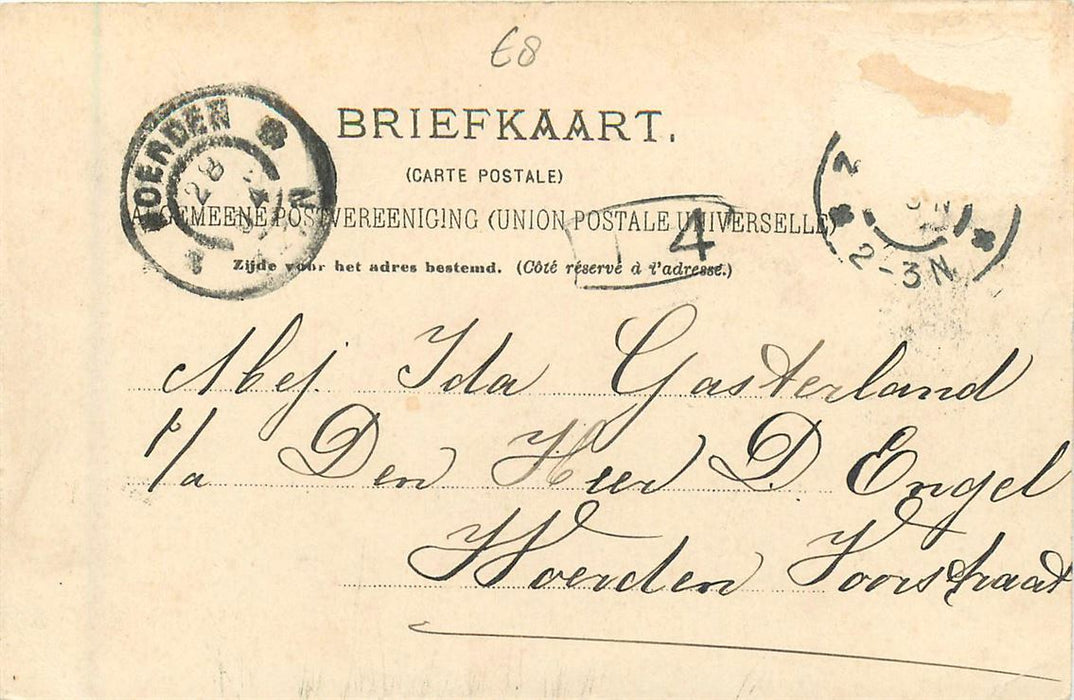 68
BRIEFKAART.
(CARTE POSTALE)
ALGEMEENE POSTVEREENIGING (UNION POSTALE UNIVERSELLE)
Zijde voor het adres bestemd. (Côté réservé à l'adresse.)
WOERDEN
28
4
2-3N
Mej. Ida Gasterland
p/a Den Heer D. Engel
Woerden Voorstraat